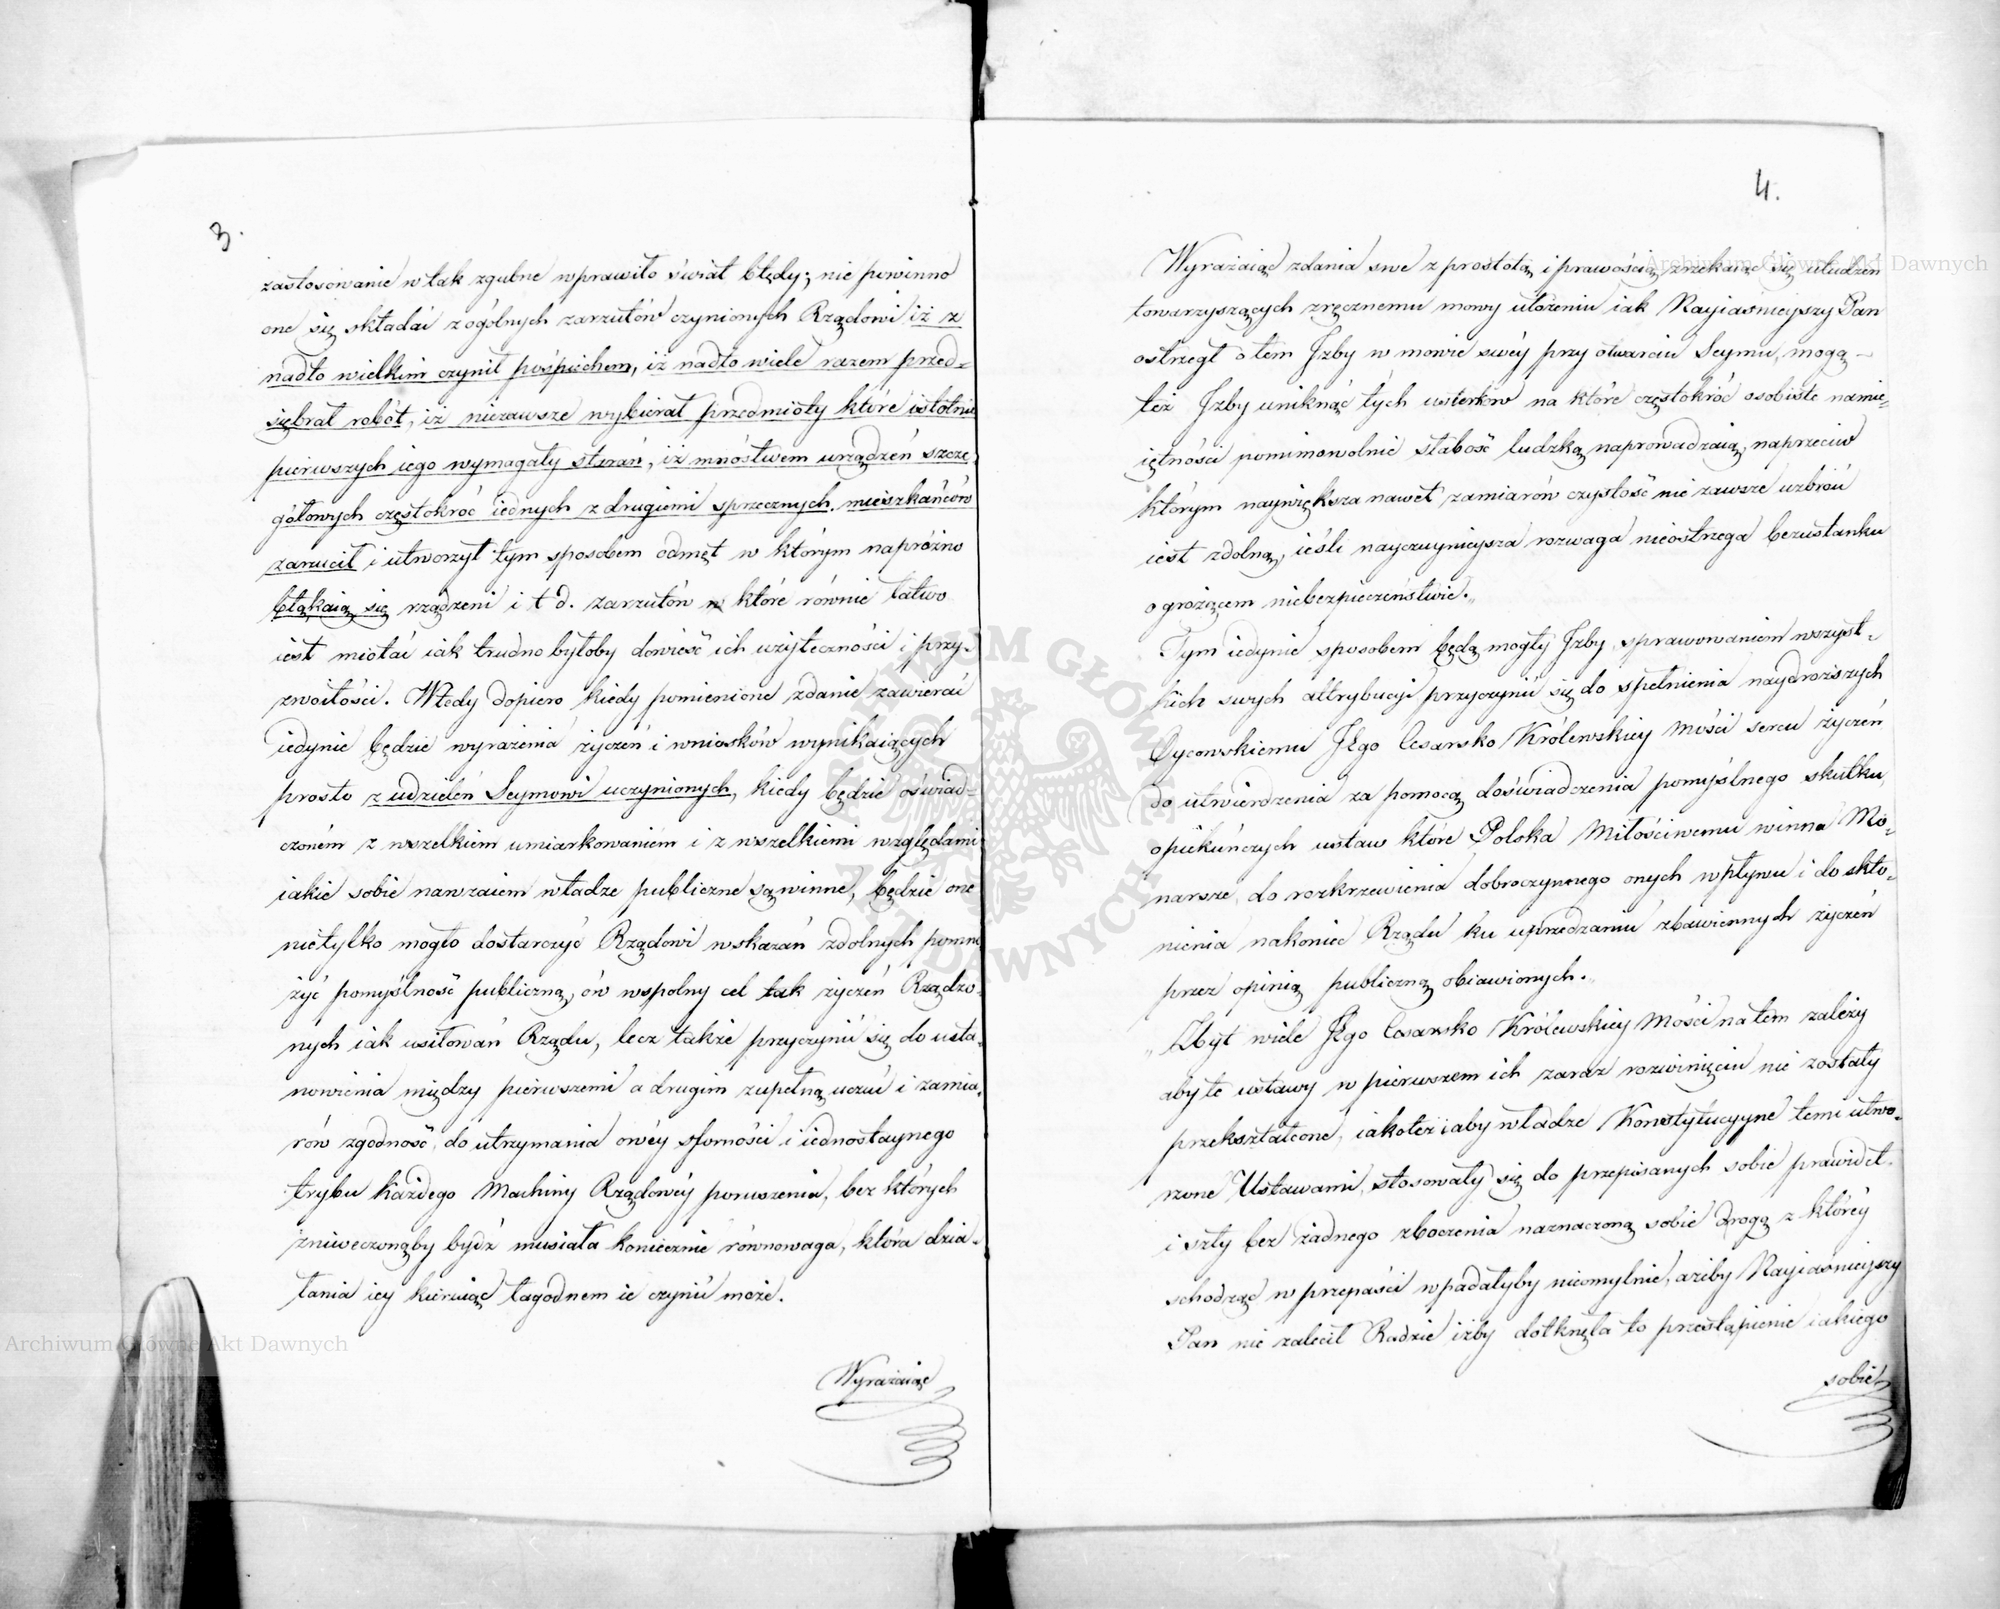 3.
zastosowanie w tak zgubne wprawiło świat błędy; nie powinno
one się składać z ogólnych zarzutów czynionych Rządowi iż z
nadto wielkim czynił pośpiechem, iż nadto wiele razem przed-
sięb​rał robót, iż niezawsze wybierał przedmioty które istotnie
pierwszych iego wymagały starań, iż mnóstwem urządzeń szcze
gółowych częstokroć iednych z drugiemi sprzecznych, mieszkańców
zarzucił i utworzył tym sposobem odmęt w którym napróżno
błąkaią się rządzeni i t d. zarzutów które równie łatwo
iest miotać iak trudno byłoby dowieść ich użyteczności i przy-
zwoitości. Wtedy dopiero kiedy pomienione zdanie zawierać
iedynie będzie wyrażenia życzeń i wniosków wynikaiących
prosto z udzieleń Seymowi uczynionych, kiedy będzie oświad-
czoném z wszelkiem umiarkowaniem i z wszelkiemi względami
iakie sobie nawzaiem władze publiczne są winne, będzie one
nietylko mogło dostarczyć Rządowi wskazań zdolnych pomno
żyć pomyślność publiczną, ów wspolny cel tak życzeń Rządzo-
nych iak usiłowań Rządu, lecz także przyczynić się do usta-
nowienia między pierwszemi a drugim zupełną uczuć i zamia-
rów zgodność, do utrzymania owéy sforności i iednostaynego
trybu każdego Machiny Rządowéy poruszenia, bez których
zniweczonąby bydź musiała koniecznie równowaga, która dzia-
łania iey kieruiąc łagodnem ie czynić może.
Wyrażaiąc
4.
Wyrażaiąc zdania swe z prostotą i prawością zrzekaiąc się ułudzeń
towarzyszących zręcznemu mowy ułożeniu iak Nayiaśnieyszy Pan
ostrzegł o tem Izby w mowie swéy przy otwarciu Seymu, mogą -
też Izby uniknąć tych usterków na które częstokróć osobiste namie-
iętności pomimowolnie słabość ludzką naprowadzaią, naprzeciw
którym naywiększa nawet zamiarów czystość nie zawsze uzbroić
iest zdolną, ieśli nayczuynieysza rozwaga nieostrzega bezustanku
o grożącem niebezpieczeństwie.
Tym iedynie sposobem będą mogły Izby, sprawowaniem wszyst-
kich swych attrybucyi przyczynić się do spełnienia naydroższych
Oycowskiemu Jego Cesarsko Królewskiey Mości sercu życzeń
do utwierdzenia za pomocą doświadczenia pomyślnego skutku,
opiekuńczych ustaw które Polska Miłościwemu winna Mo-
narsze, do rozkrzewienia dobroczynnego onych wpływu i do skło-
nienia nakoniec Rządu ku uprzedzaniu zbawiennych życzeń
przez opinią publiczną obiawionych.
„Zbyt wiele Jego Cesarsko Królewskiey Mości na tem zależy
aby te ustawy w pierwszem ich zaraz rozwinięciu nie zostały
przekształcone, iakoteż iaby władze Konstytucyyne temi utwo-
rzone Ustawami, stosowały się do przepisanych sobie prawideł
i szły bez żadnego zboczenia naznaczoną sobie drogą z któréy
schodząc w przepaści wpadałyby nieomylnie, ażeby Nayiaśnieyszy
Pan nie zalecił Radzie iżby dotknęła to przestąpienie iakiego
sobie
Archiwum Główne Akt Dawnych
Archiwum Główne Akt Dawnych
ARCHIWUM GŁÓWNE AKT DAWNYCH